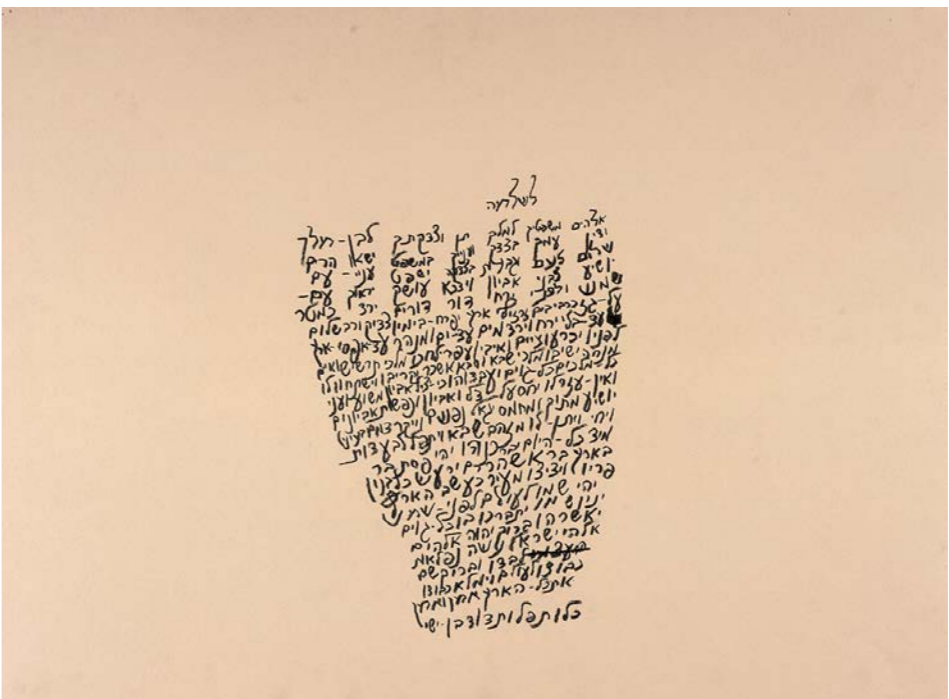 לשלמה
אלהים משפטיך למלך תן וצדקתך לבן-מלך
ידין עמך בצדק ועניך במשפט ישאו הרים
שלום לעם וגבעות בצדקה ישפט עניי-עם
יושיע לבני אביון וידכא עושק יראוך עם-
שמש ולפני ירח דור דורים ירד כמטר
על-גז כרביבים זרזיף ארץ יפרח-בימיו צדיק ורב שלום
עד-בלי ירח וירד מים עד-ים ומנהר עד-אפסי-ארץ
לפניו יכרעו ציים ואיביו עפר ילחכו מלכי תרשיש ואיים
מנחה ישיבו מלכי שבא וסבא אשכר יקריבו וישתחוו לו
כל-מלכים כל-גוים יעבדוהו כי-יציל אביון משוע ועני
ואין-עזר לו יחס על-דל ואביון ונפשות אביונים
יושיע מתוך ומחמס יגאל נפשם וייקר דמם בעיניו
ויחי ויתן-לו מזהב שבא ויתפלל בעדו ת
מיד כל-היום יברכנהו יהי פסת בר
בארץ בראש הרים ירעש כלבנון
פריו ויציצו מעיר כעשב הארץ
יהי שמו לעולם לפני-שמש
ינין שמו יתברכו בו כל-גוים
יאשרהו ברוך יהוה אלהים
אלהי ישראל עשה נפלאות
לבדו וברוך שם
כבודו לעולם וימלא כבודו
את כל-הארץ אמן ואמן
כלו תפלות דוד בן-ישי